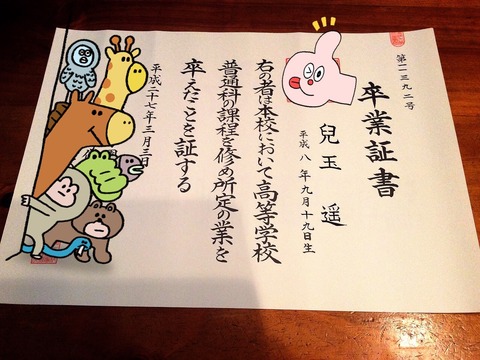 第二三九二号
卒業証書
兒玉遥
平成八年九月十九日生
右の者は本校において高等学校
普通科の課程を修め所定の業を
卒えたことを証する
平成二十七年三月三日